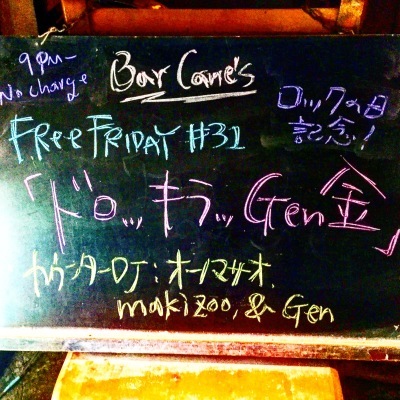 9PM-
No charge
Bar Cane's
ロックの日
記念!
FREE FRIDAY #31
「ドロッキラッGen金」
カウンターDJ:オーノマサオ.
makizoo, & Gen